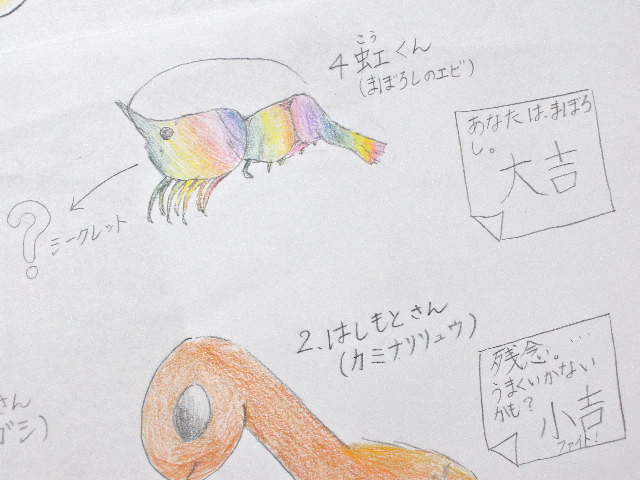 こう
4 虹くん
(まぼろしのエビ)
あなたは、まぼろ
し。
大吉
?
シークレット
2.はしもとさん
(カミナリリュウ)
残念。…
うまくいかない
かも?
小吉
ファイト!
さん
ガシ)